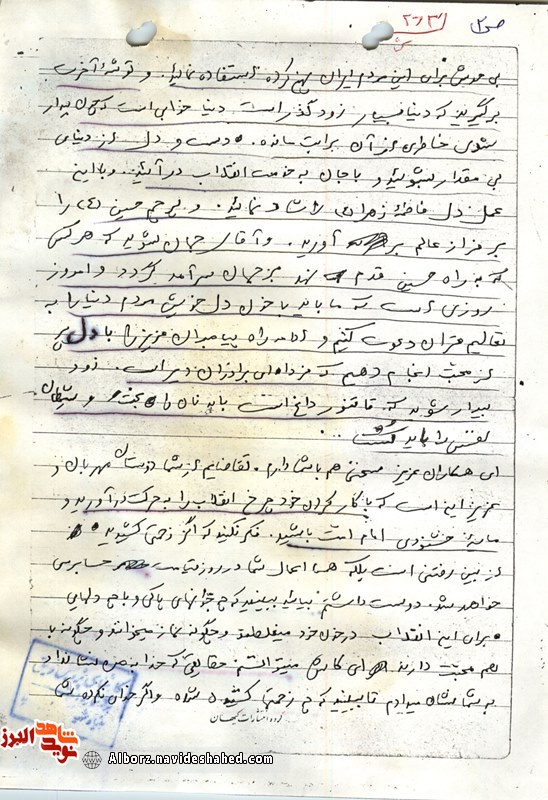 ص ۲
بی عوض برای این مردم ایران پهن کرده استفاده نمائید. و توشۀ آخرت
برگیرید که دنیا بسیار زودگذر است دنیا خوابی است که چون بیدار
شوی خاطره‌ای از آن برایت مانده. دست و دل از دنیای
بی مقدار بشوئید و با جان به خدمت انقلاب درآئید. و با این
عمل دل فاطمۀ زهرا (س) را شاد نمائید. و پرچم حسین (ع) را
بر فراز عالم بر آورید. و آقای جهان شوید که هر کس
که به راه حسین قدم نهد بر جهان سرآمد گردد و امروز
روزی است که ما باید با خون دل خویش مردم دنیا را به
تعالیم قرآن دعوت کنیم و ادامه راه پیامبران عزیز را با دل پر
از محبت انجام دهیم که فردا ای برادران دیر است. زود
بیدار شوید که تا تنور داغ است باید نان را پخت و شیطان
نفس را باید کشت ..
ای همکاران عزیز سخنی هم با شما دارم. تقاضایم از شما دوستان مهربان و
عزیز این است که با کار کردن خود چرخ انقلاب را به حرکت درآورید و
مایۀ خشنودی امام امت باشید. فکر نکنید که اگر زحمتی کشیدید
از بین رفتنی است بلکه همۀ اعمال شما در روز قیامت حسابرسی
خواهد شد. دوست داشتم بیائید ببینید که چه جوانهای پاکی و با چه دلهایی
برای این انقلاب در خون خود میغلطند و چگونه نماز میخوانند و چگونه با
هم محبت دارند. ای کاش میتوانستم حقایقی که
به شما نشان میدادم تا ببینید که چه زحمتی کشیده شده و اگر خدای نکرده شما
گروه انتشارات کیهان
نوید شاهد البرز
Alborz.navideshahed.com